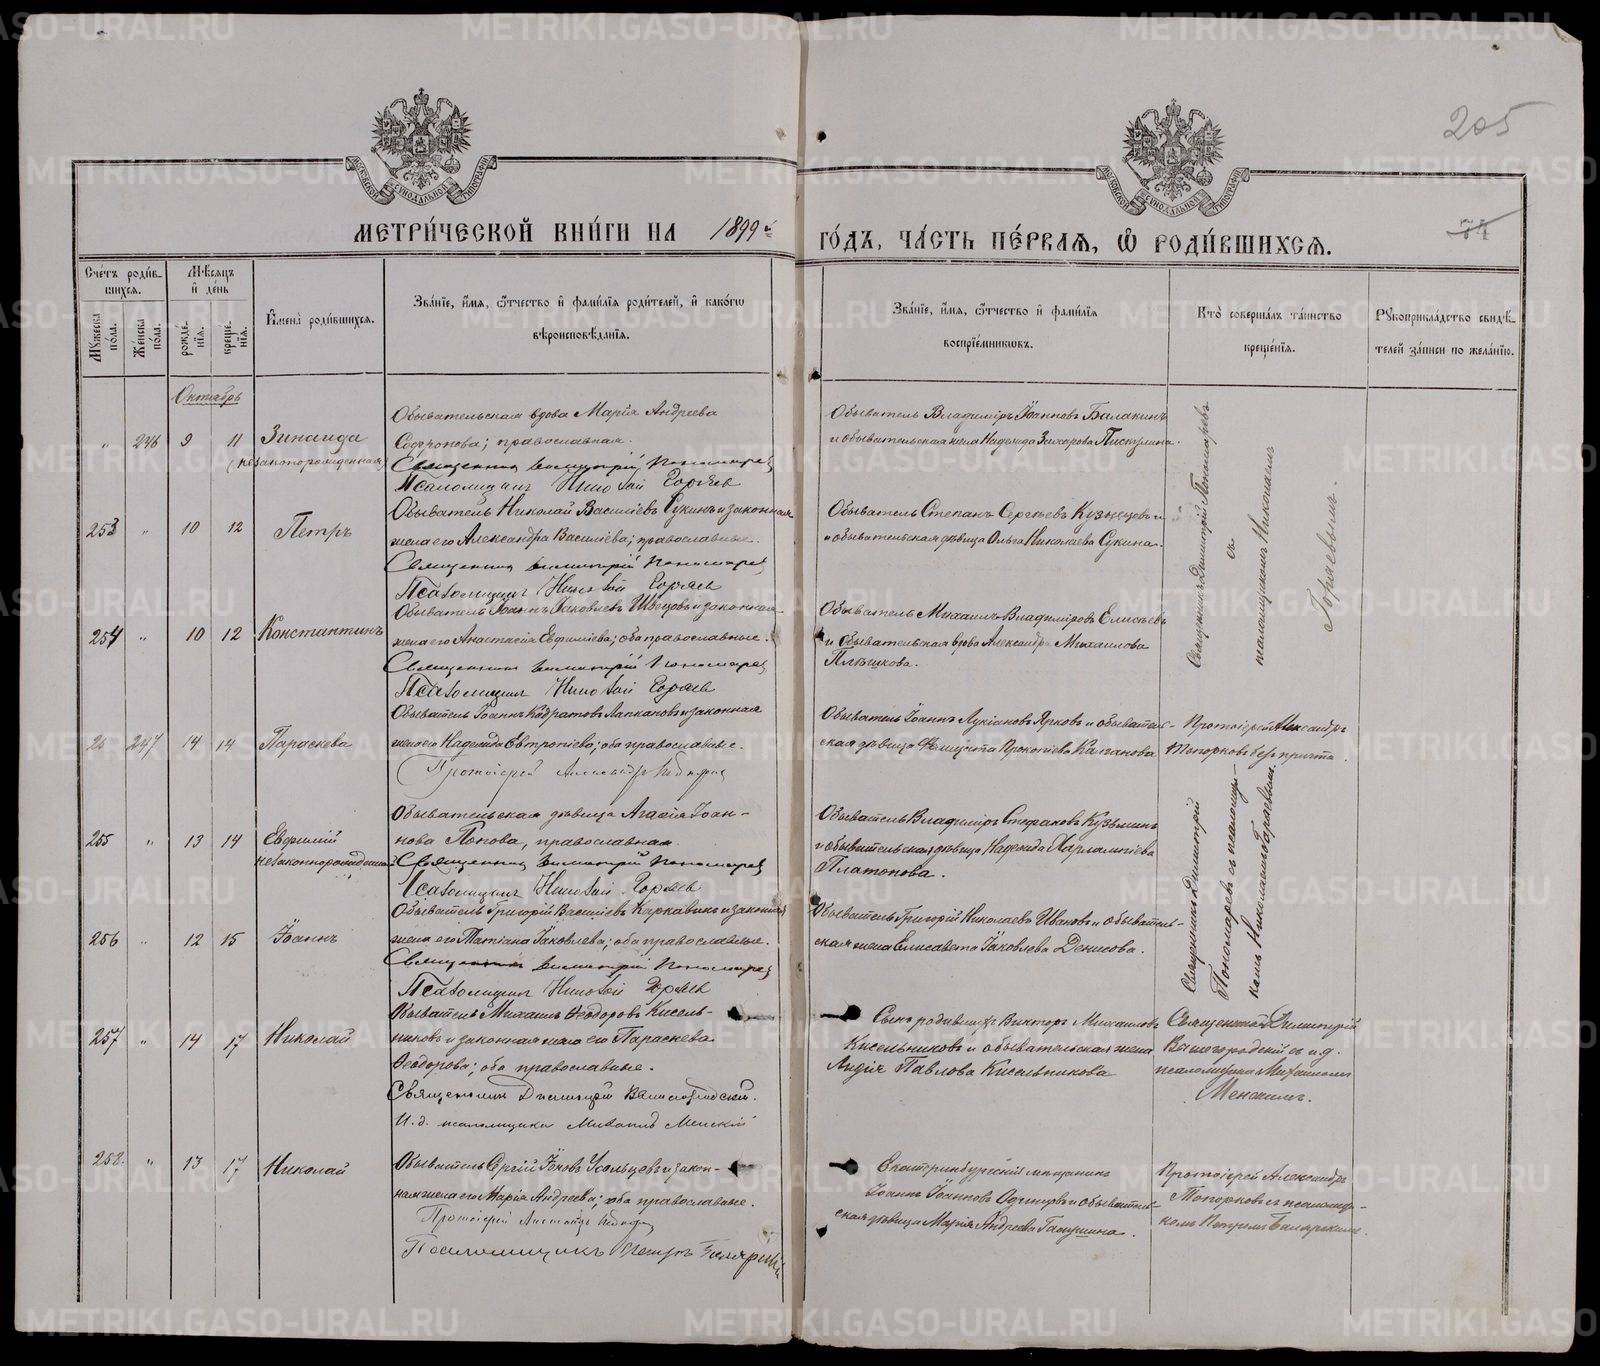 METRIKI.GASO-URAL.RU
205
74
МОСКОВСКОЙ СѴНОДАЛЬНОЙ ТИПОГРАФІИ
МОСКОВСКОЙ СѴНОДАЛЬНОЙ ТИПОГРАФІИ
МЕТРИ́ЧЕСКОЙ КНИ́ГИ НА 1899й ГО́ДЪ, ЧА́СТЬ ПЕ́РВАЯ, Ѡ РОДИ́ВШИХСЯ.
Сче́тъ роди́в-
шихся.
Му́жеска по́ла.
Же́нска по́ла.
Мѣ́сяцъ
и де́нь
рожде́-
нія.
креще́-
нія.
Имена̀ роди́вшихся.
Зва́ніе, и́мя, ѻ́тчество и фами́лія роди́телей, и како́гѡ
вѣроисповѣ́данія.
Зва́ніе, и́мя, ѻ́тчество и фами́лія
воспріе́мникѡвъ.
Кто̀ соверша́лъ та́инство
креще́нія.
Рꙋкоприкла́дство свидѣ́-
телей за́писи по жела́нію.
Октябрь
" 246 9 11 Зинаида
(незаконорожденная)
Обывательская вдова Марія Андреева
Софронова; православная.
Священникъ Димитрій Пономарев
Псаломщикъ Николай Горяев
Обыватель Владиміръ Іоанновъ Балакинъ
и обывательская жена Надежда Захарова Пискулина.
Священникъ Димитрій Пономаревъ
съ
псаломщикомъ Николаемъ
Горяевымъ.
253 " 10 12 Петръ
Обыватель Николай Василіевъ Сукинъ и законная
жена его Александра Василіева; православные.
Священникъ Димитрій Пономарев
Псаломщикъ Николай Горяев
Обыватель Степанъ Сергѣевъ Кузнецовъ и
и обывательская дѣвица Ольга Николаева Сукина.
254 " 10 12 Константинъ
Обыватель Іоаннъ Іаковлевъ Швецовъ и законная
жена его Анастасія Евфиміева; оба православные.
Священникъ Димитрій Пономарев
Псаломщикъ Николай Горяев
Обыватель Михаилъ Владиміровъ Елисѣевъ
и обывательская вдова Александра Михаилова
Плѣшкова.
247 14 14 Параскева
Обыватель Іоаннъ Кодратовъ Лапкановъ и законная
жена его Надежда Евтропіева; оба православные.
Протоіерей Александръ
Обыватель Іоаннъ Лукіановъ Ярковъ и обыватель-
ская дѣвица Фелицата Прокопіева Калганова
Протоіерей Александръ
Топорковъ безъ причта.
255 " 13 14 Евфимій
незаконнорожденный
Обывательская дѣвица Агасія Іоан-
нова Попова, православная.
Священникъ Димитрій Пономарев
Псаломщикъ Николай Горяев
Обыватель Владиміръ Стефановъ Кузьминъ
и обывательская дѣвица Надежда Харлампіева
Платонова.
Священникъ Димитрій
Пономаревъ съ псаломщи-
комъ Николаемъ Горяевымъ.
256 " 12 15 Іоаннъ
Обыватель Григорій Василіевъ Каркавинъ и законная
жена его Татіана Іаковлева; оба православные.
Священникъ Димитрій Пономарев
Псаломщикъ Николай Горяев
Обыватель Григорій Николаевъ Ивановъ и обыватель-
ская жена Елисавета Іаковлева Денисова.
257 " 14 17 Николай
Обыватель Михаилъ Ѳеодоровъ Кисель-
никовъ и законная жена его Параскева
Ѳеодорова; оба православные.
Священникъ Димитрій Вышегородскій.
И.д. псаломщика Михаилъ Менскій
Сынъ родившихъ Викторъ Михаиловъ
Кисельниковъ и обывательская жена
Лидія Павлова Кисельникова
Священникъ Димитрій
Вышегородскій съ и.д.
псаломщика Михаиломъ
Менскимъ.
258. " 13 17 Николай
Обыватель Сергій Іововъ Усольцевъ и закон-
ная жена его Марія Андреева; оба православные.
Протоіерей Александръ
Псаломщикъ Петръ Билярскій
Екатеринбургскій мѣщанинъ
Іоаннъ Іоанновъ Одинцовъ и обыватель-
ская дѣвица Марія Андреева Галушина.
Протоіерей Александръ
Топорковъ съ псаломщи-
комъ Петромъ Билярскимъ.